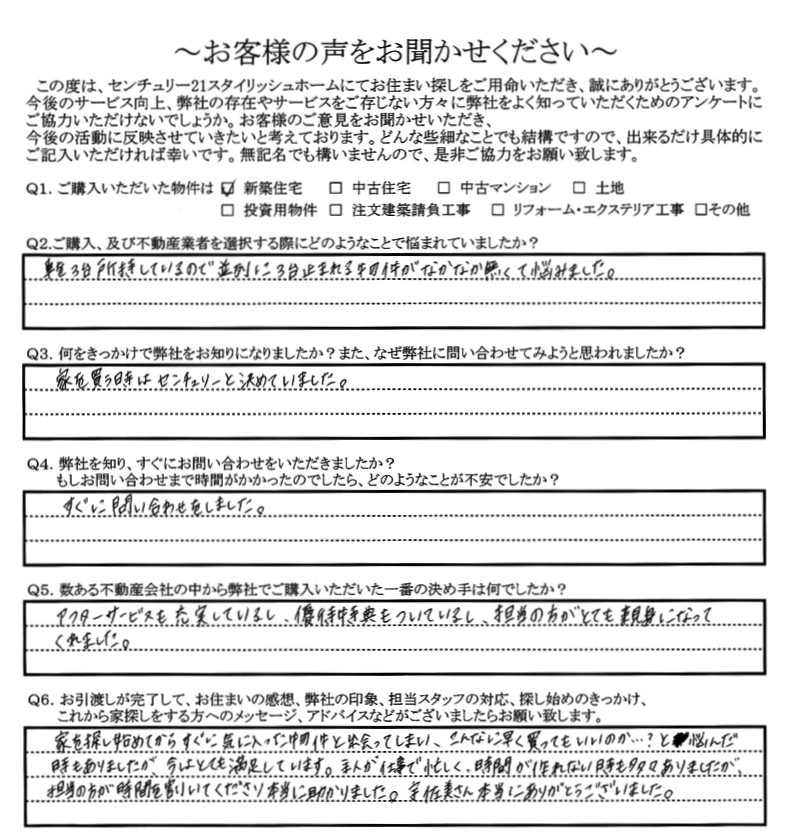 ～お客様の声をお聞かせください～
この度は、センチュリー21スタイリッシュホームにてお住まい探しをご用命いただき、誠にありがとうございます。
今後のサービス向上、弊社の存在やサービスをご存じない方々に弊社をよく知っていただくためのアンケートに
ご協力いただけないでしょうか。お客様のご意見をお聞かせいただき、
今後の活動に反映させていきたいと考えております。どんな些細なことでも結構ですので、出来るだけ具体的に
ご記入いただければ幸いです。無記名でも構いませんので、是非ご協力をお願い致します。
Q1. ご購入いただいた物件は ☑ 新築住宅 □ 中古住宅 □ 中古マンション □ 土地
□ 投資用物件 □ 注文建築請負工事 □ リフォーム・エクステリア工事 □その他
Q2.ご購入、及び不動産業者を選択する際にどのようなことで悩まれていましたか?
車を3台所持しているので並列に3台止まれる物件がなかなか無くて悩みました。
Q3. 何をきっかけで弊社をお知りになりましたか?また、なぜ弊社に問い合わせてみようと思われましたか?
家を買う時はセンチュリーと決めていました。
Q4. 弊社を知り、すぐにお問い合わせをいただきましたか?
もしお問い合わせまで時間がかかったのでしたら、どのようなことが不安でしたか?
すぐに問い合わせをしました。
Q5. 数ある不動産会社の中から弊社でご購入いただいた一番の決め手は何でしたか?
アフターサービスも充実しているし、優待特典もついているし、担当の方がとても親身になって
くれました。
Q6. お引渡しが完了して、お住まいの感想、弊社の印象、担当スタッフの対応、探し始めのきっかけ、
これから家探しをする方へのメッセージ、アドバイスなどがございましたらお願い致します。
家を探し始めてからすぐに気に入った物件と出会ってしまい、こんなに早く買ってもいいのか…?と悩んだ
時もありましたが、今はとても満足しています。主人が仕事で忙しく、時間が作れない時も多々ありましたが、
担当の方が時間を割いてくださり本当に助かりました。宇佐美さん本当にありがとうございました。